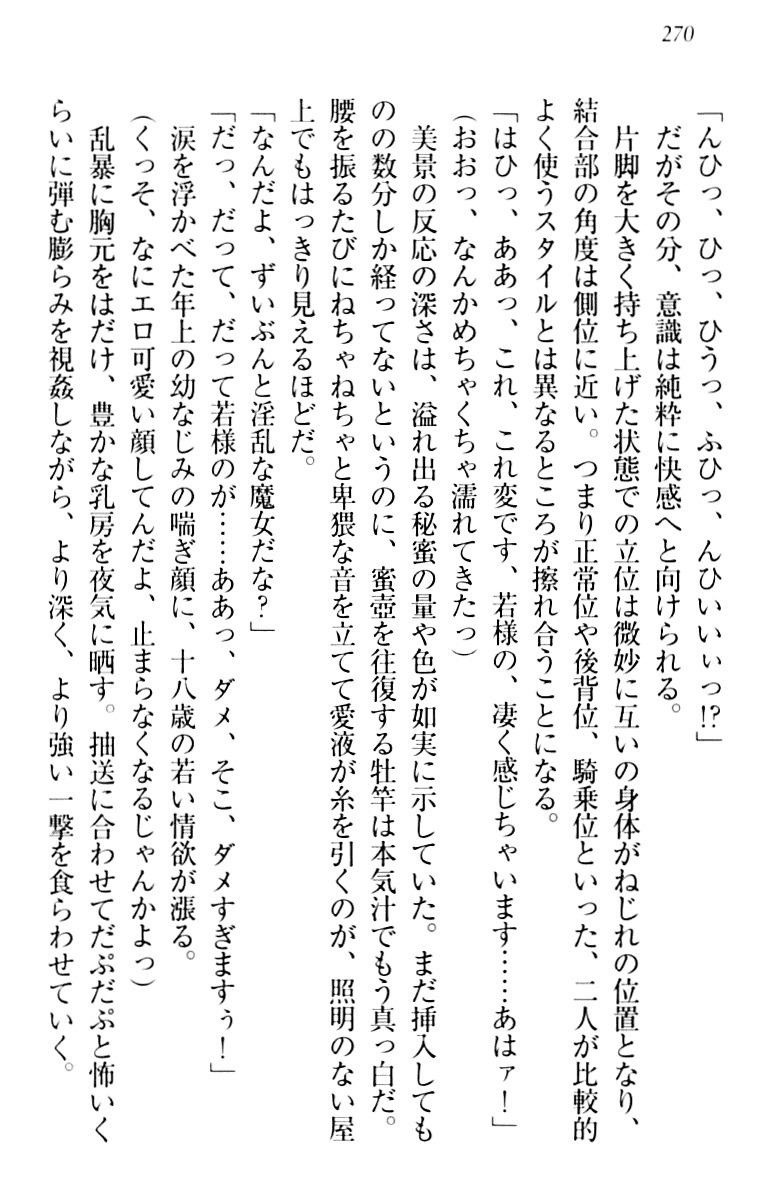 270
「んひっ、ひっ、ひうっ、ふひっ、んひいいぃっ!?」
だがその分、意識は純粋に快感へと向けられる。
片脚を大きく持ち上げた状態での立位は微妙に互いの身体がねじれの位置となり、
結合部の角度は側位に近い。つまり正常位や後背位、騎乗位といった、二人が比較的
よく使うスタイルとは異なるところが擦れ合うことになる。
「はひっ、ああっ、これ、これ変です、若様の、凄く感じちゃいます……あはァ!」
(おおっ、なんかめちゃくちゃ濡れてきたっ)
美景の反応の深さは、溢れ出る秘蜜の量や色が如実に示していた。まだ挿入しても
のの数分しか経ってないというのに、蜜壺を往復する牡竿は本気汁でもう真っ白だ。
腰を振るたびにねちゃねちゃと卑猥な音を立てて愛液が糸を引くのが、照明のない屋
上でもはっきり見えるほどだ。
「なんだよ、ずいぶんと淫乱な魔女だな?」
「だっ、だって、だって若様のが……ああっ、ダメ、そこ、ダメすぎますぅ!」
涙を浮かべた年上の幼なじみの喘ぎ顔に、十八歳の若い情欲が漲る。
(くっそ、なにエロ可愛い顔してんだよ、止まらなくなるじゃんかよっ)
乱暴に胸元をはだけ、豊かな乳房を夜気に晒す。抽送に合わせてだぷだぷと怖いく
らいに弾む膨らみを視姦しながら、より深く、より強い一撃を食らわせていく。